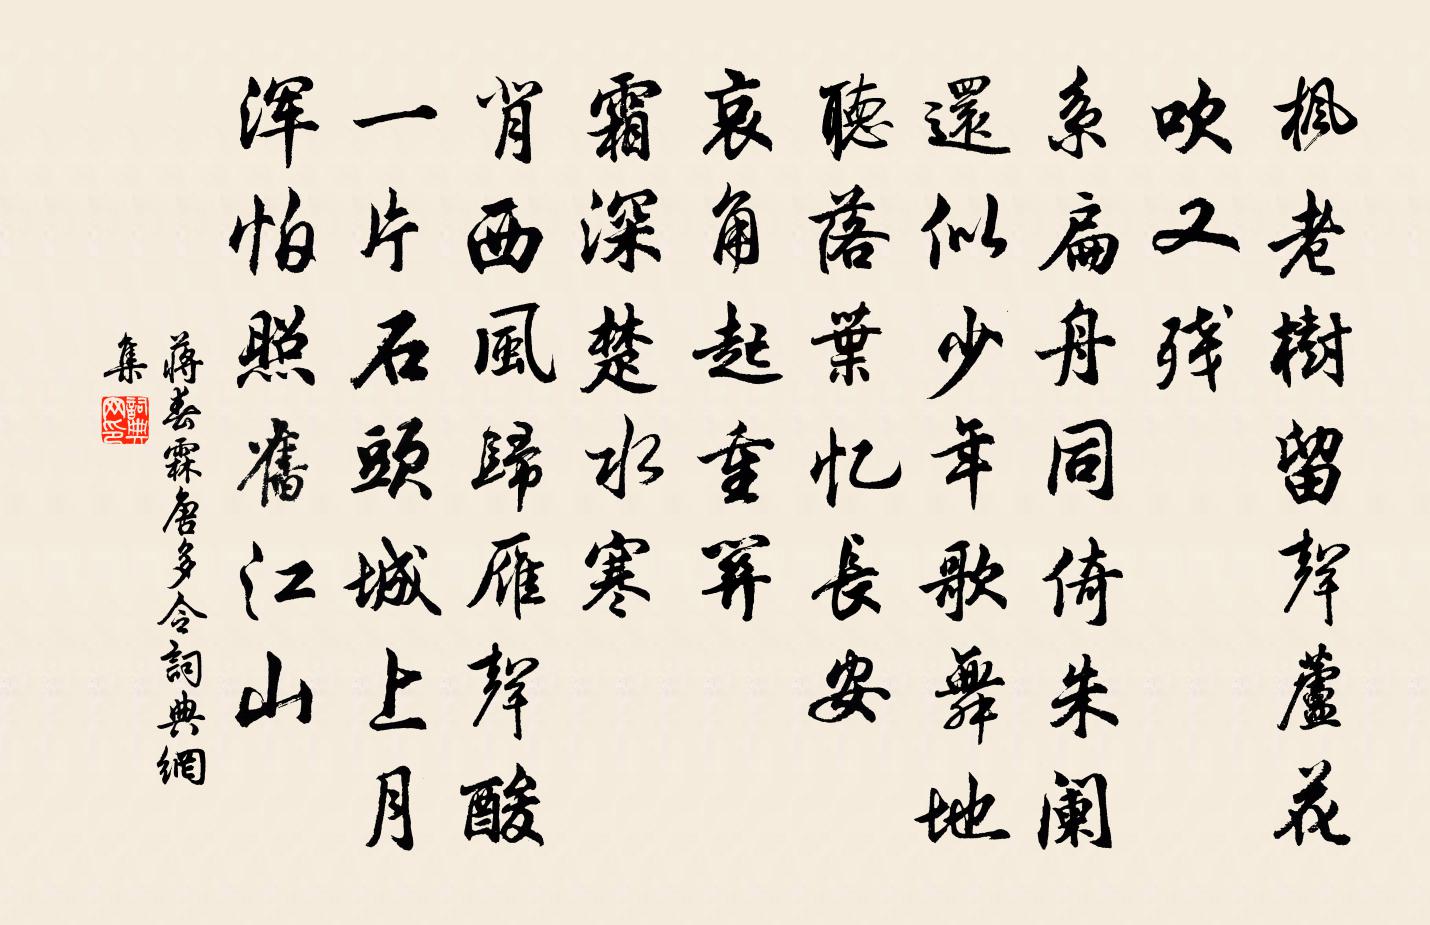 楓老樹留聲蘆花
吹又残
系扁舟同倚朱阑
還似少年歌舞地
聽落葉忆長安
哀角起重関
霜深楚水寒
背西風歸雁聲酸
一片石頭城上月
浑怕照舊江山
蒋春霖唐多令詞典網
集
詞典网印